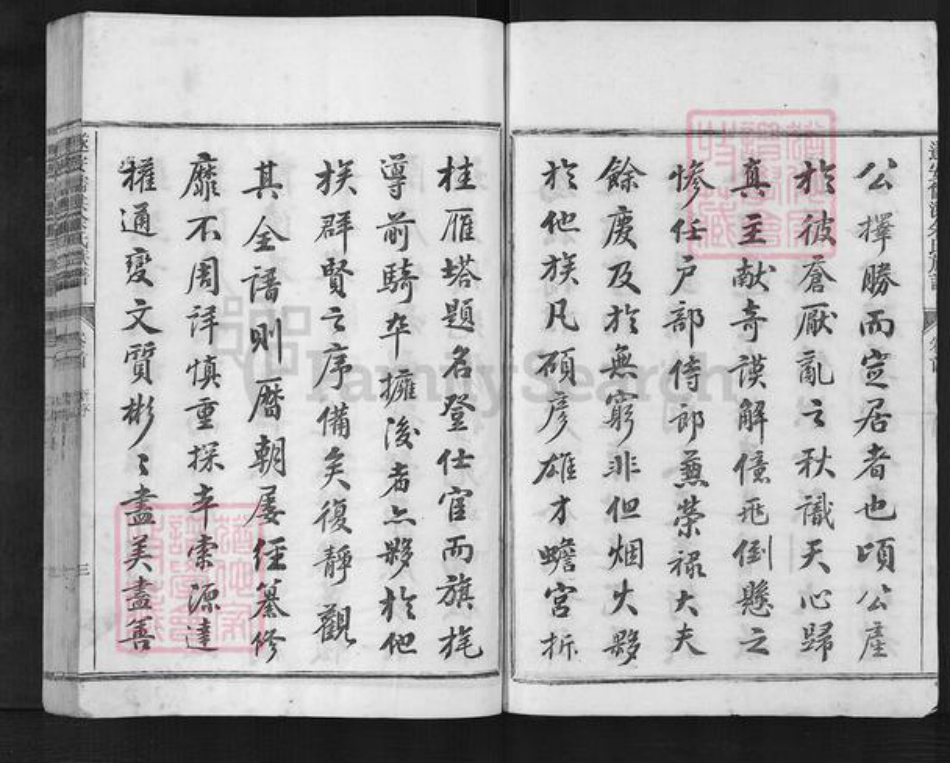 公擇勝而定居者也頃公產
於彼蒼厭亂之秋識天心歸
真主献奇謨解億兆倒懸之
慘任户部侍郎兼榮禄大夫
餘慶及於無窮非但烟火夥
於他族凡碩彦雄才蟾宫折
桂雁塔題名登仕宦而旗旄
導前騎卒擁後者亦夥於他
族群賢之序備矣復靜觀
其全譜則曆朝屡經纂修
靡不周詳慎重探本索源達
權通變文質彬〻盡美盡善
卷首
三
FamilySearch